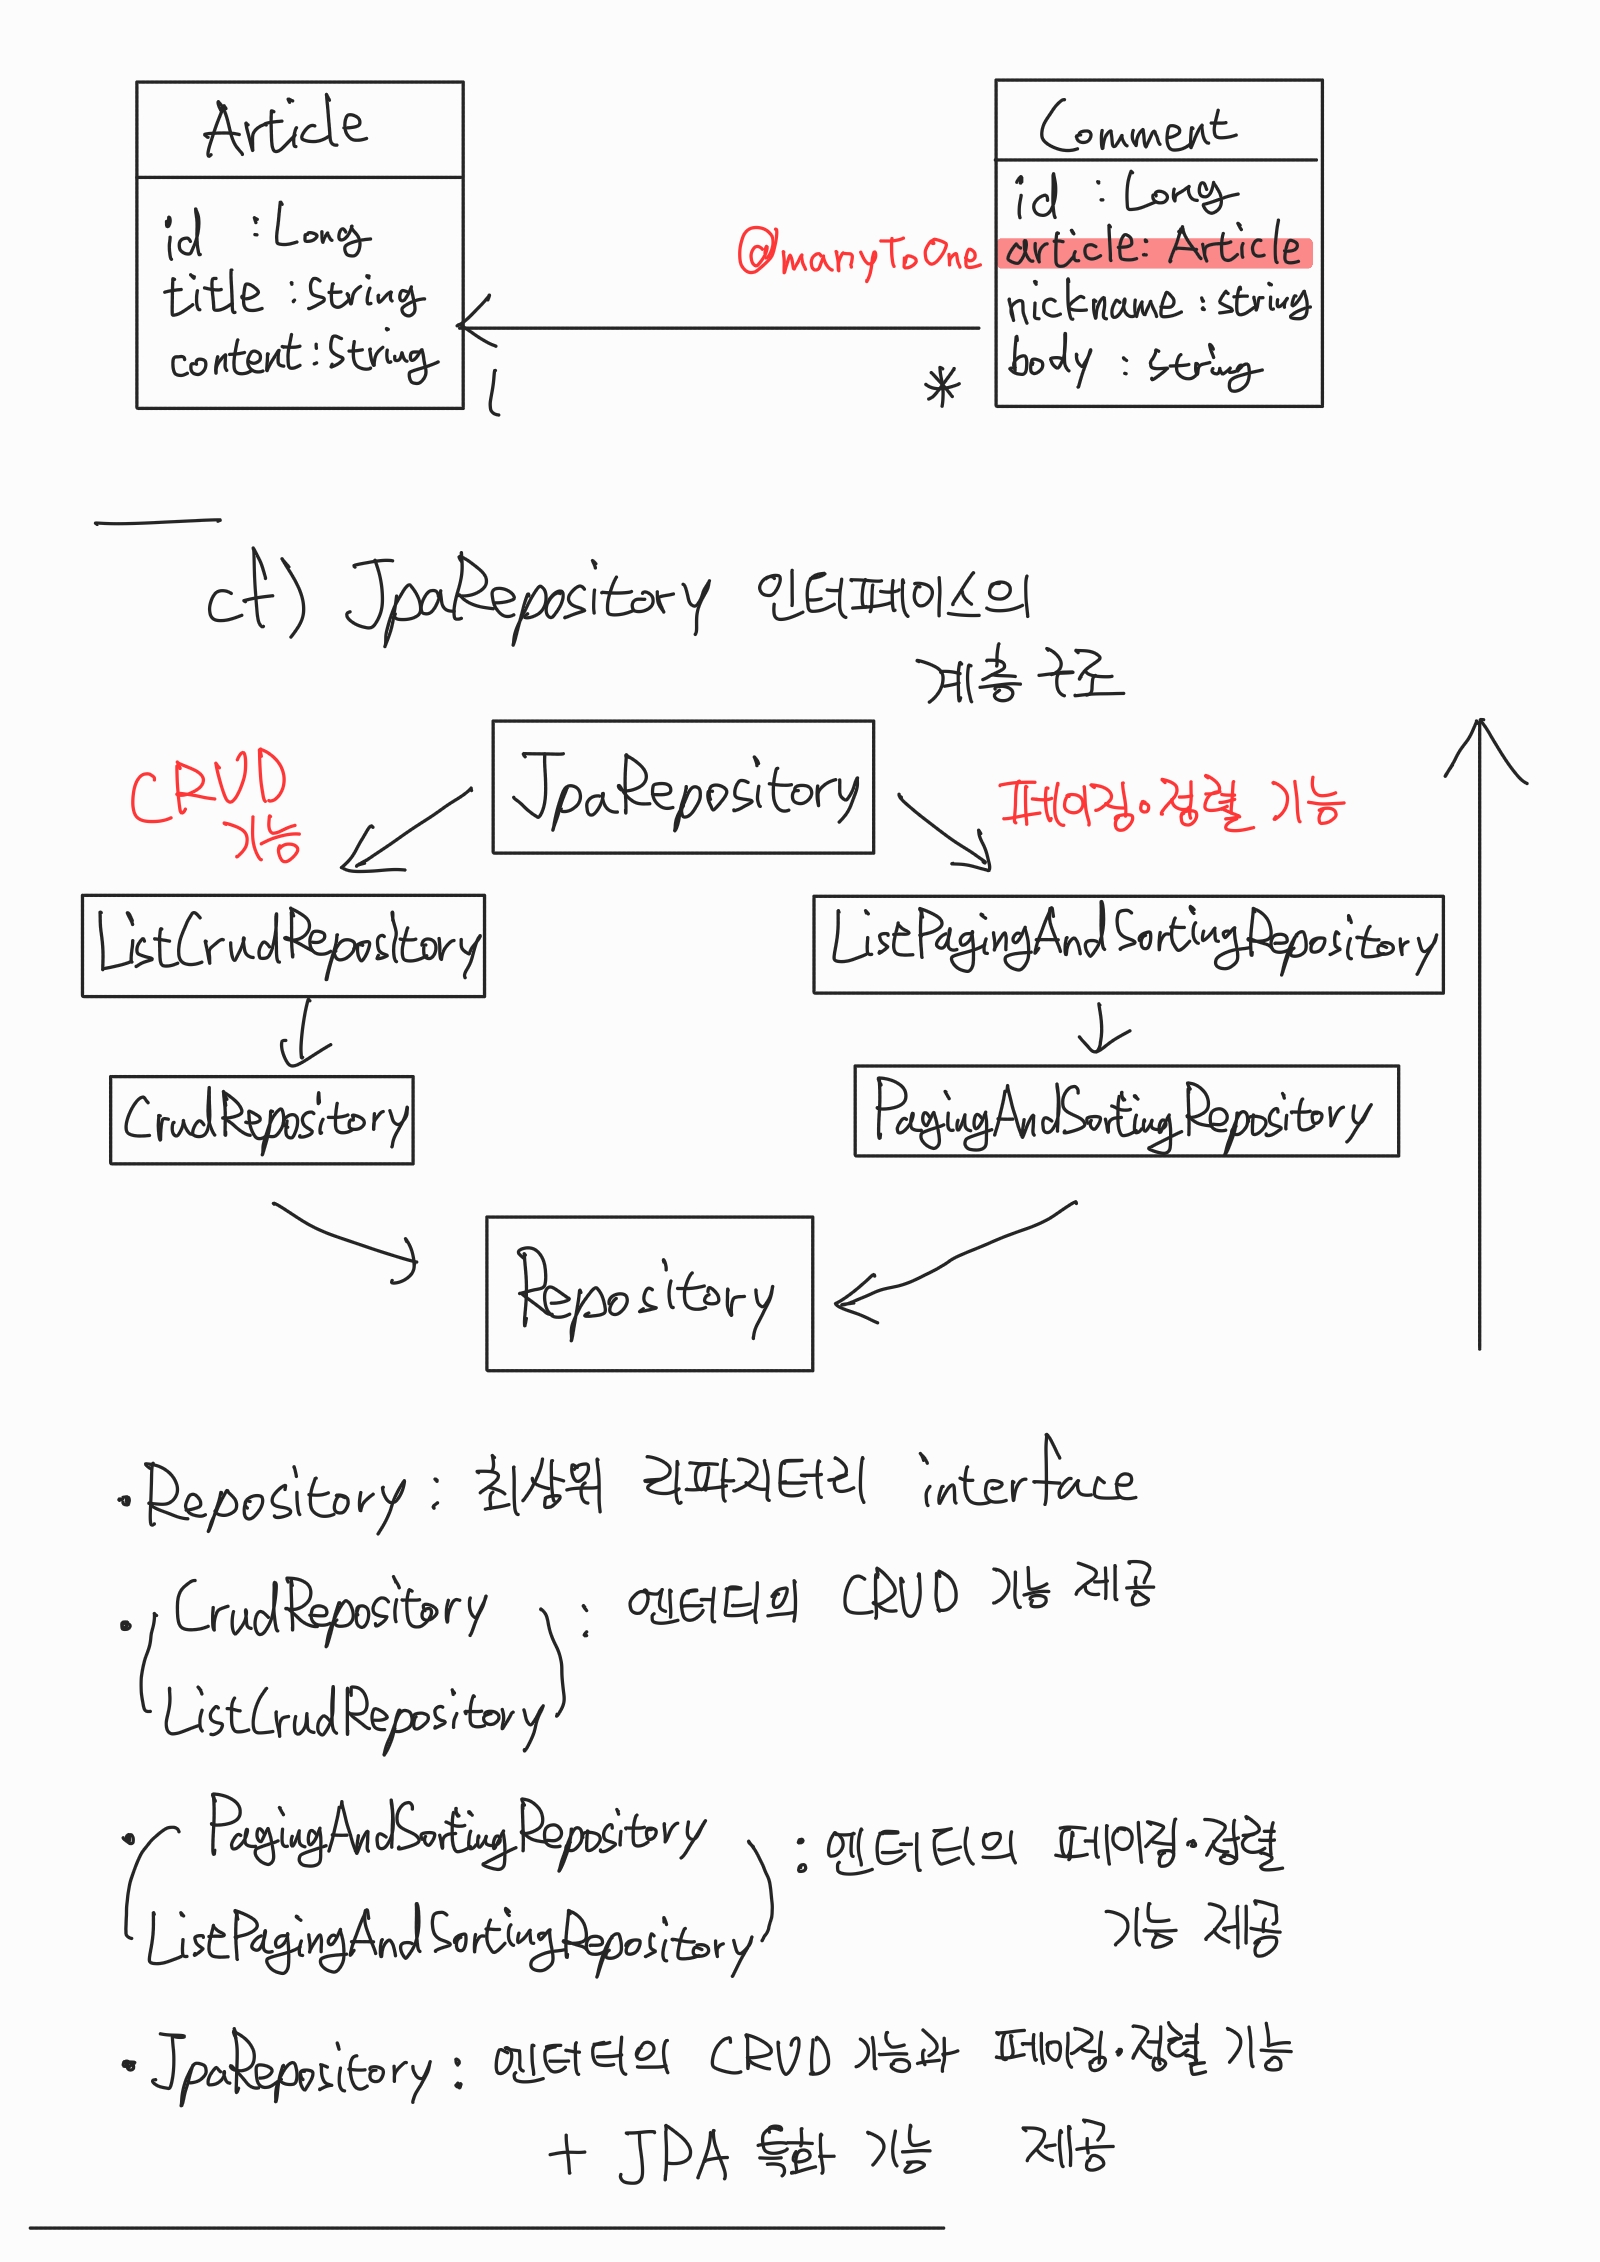 Article
id : Long
title : string
content : string
@manyToOne
1
*
Comment
id : Long
article : Article
nickname : string
body : string
cf) JpaRepository 인터페이스의
계층 구조
JpaRepository
CRUD
기능
페이징·정렬 기능
ListCrudRepository
ListPagingAndSortingRepository
CrudRepository
PagingAndSortingRepository
Repository
• Repository : 최상위 리파지터리 interface
• CrudRepository : 엔터티의 CRUD 기능 제공
ListCrudRepository
• PagingAndSortingRepository : 엔터티의 페이징·정렬
ListPagingAndSortingRepository 기능 제공
• JpaRepository : 엔터티의 CRUD 기능과 페이징·정렬 기능
+ JPA 특화 기능 제공